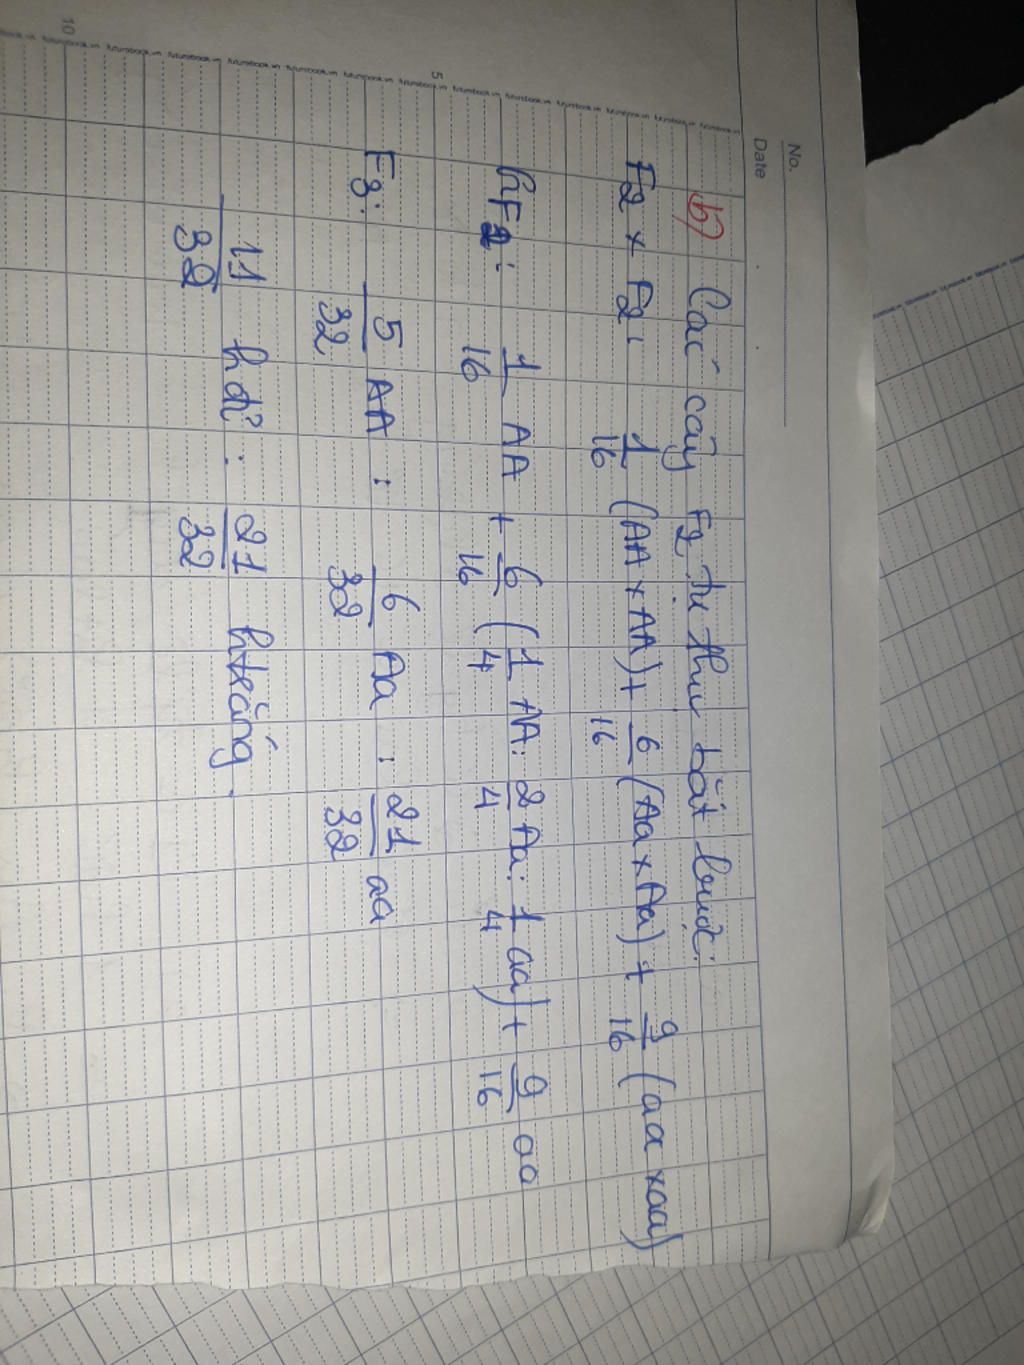 No.
Date
b) Các cây F2 tự thụ bắt buộc:
F2 x F2: 1/16 (AA x AA) + 6/16 (Aa x Aa) + 9/16 (aa x aa)
: 1/16 AA + 6/16 (1/4 AA : 2/4 Aa : 1/4 aa) + 9/16 aa
5
F3: 5/32 AA : 6/32 Aa : 21/32 aa
11/32 h đỏ : 21/32 h trắng.
10